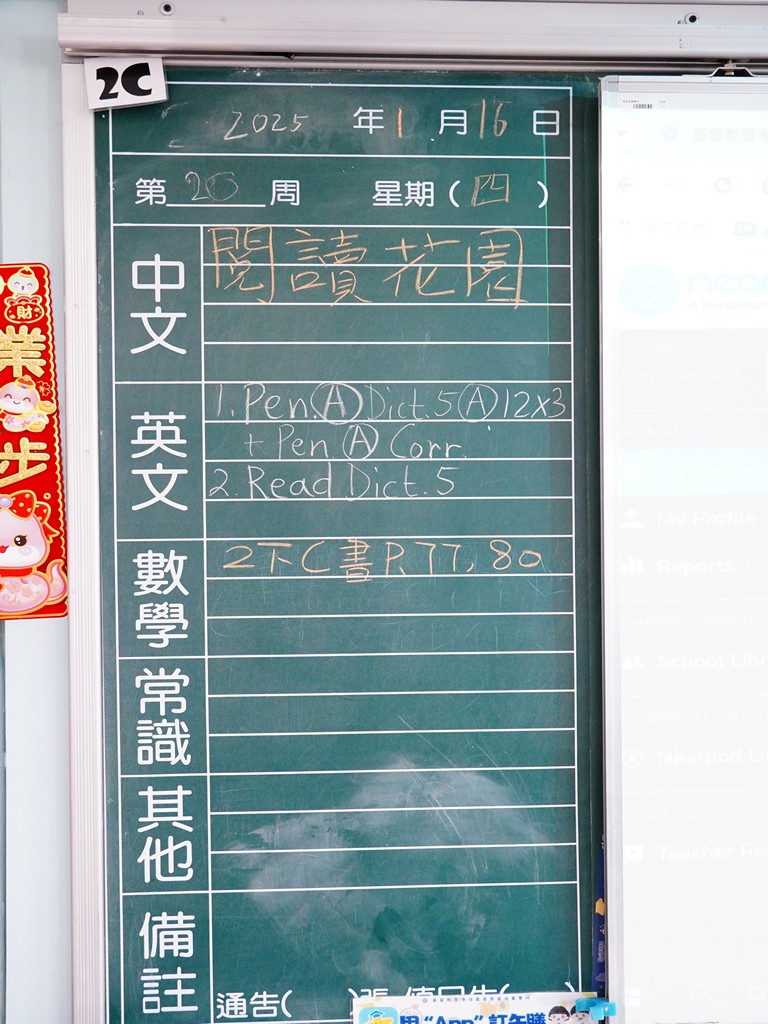 2C
2025 年 1 月 16 日
第 20 周 星期 ( 四 )
中文
閱讀花園
英文
1. Pen. Ⓐ Dict. 5 Ⓐ 12x3
+ Pen Ⓐ Corr.
2. Read Dict. 5
數學
2下C 書 P. 77, 80
常識
其他
備註
通告( )張
用 "App" 訂午膳
財
業
步
My Profile
Reports
School Libr
Nearpod Lib
Teacher Re